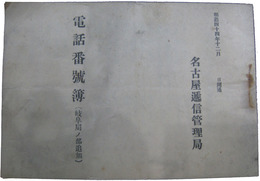 明治四十四年十二月
名古屋逓信管理局
電話番號簿（岐阜局ノ部追加）